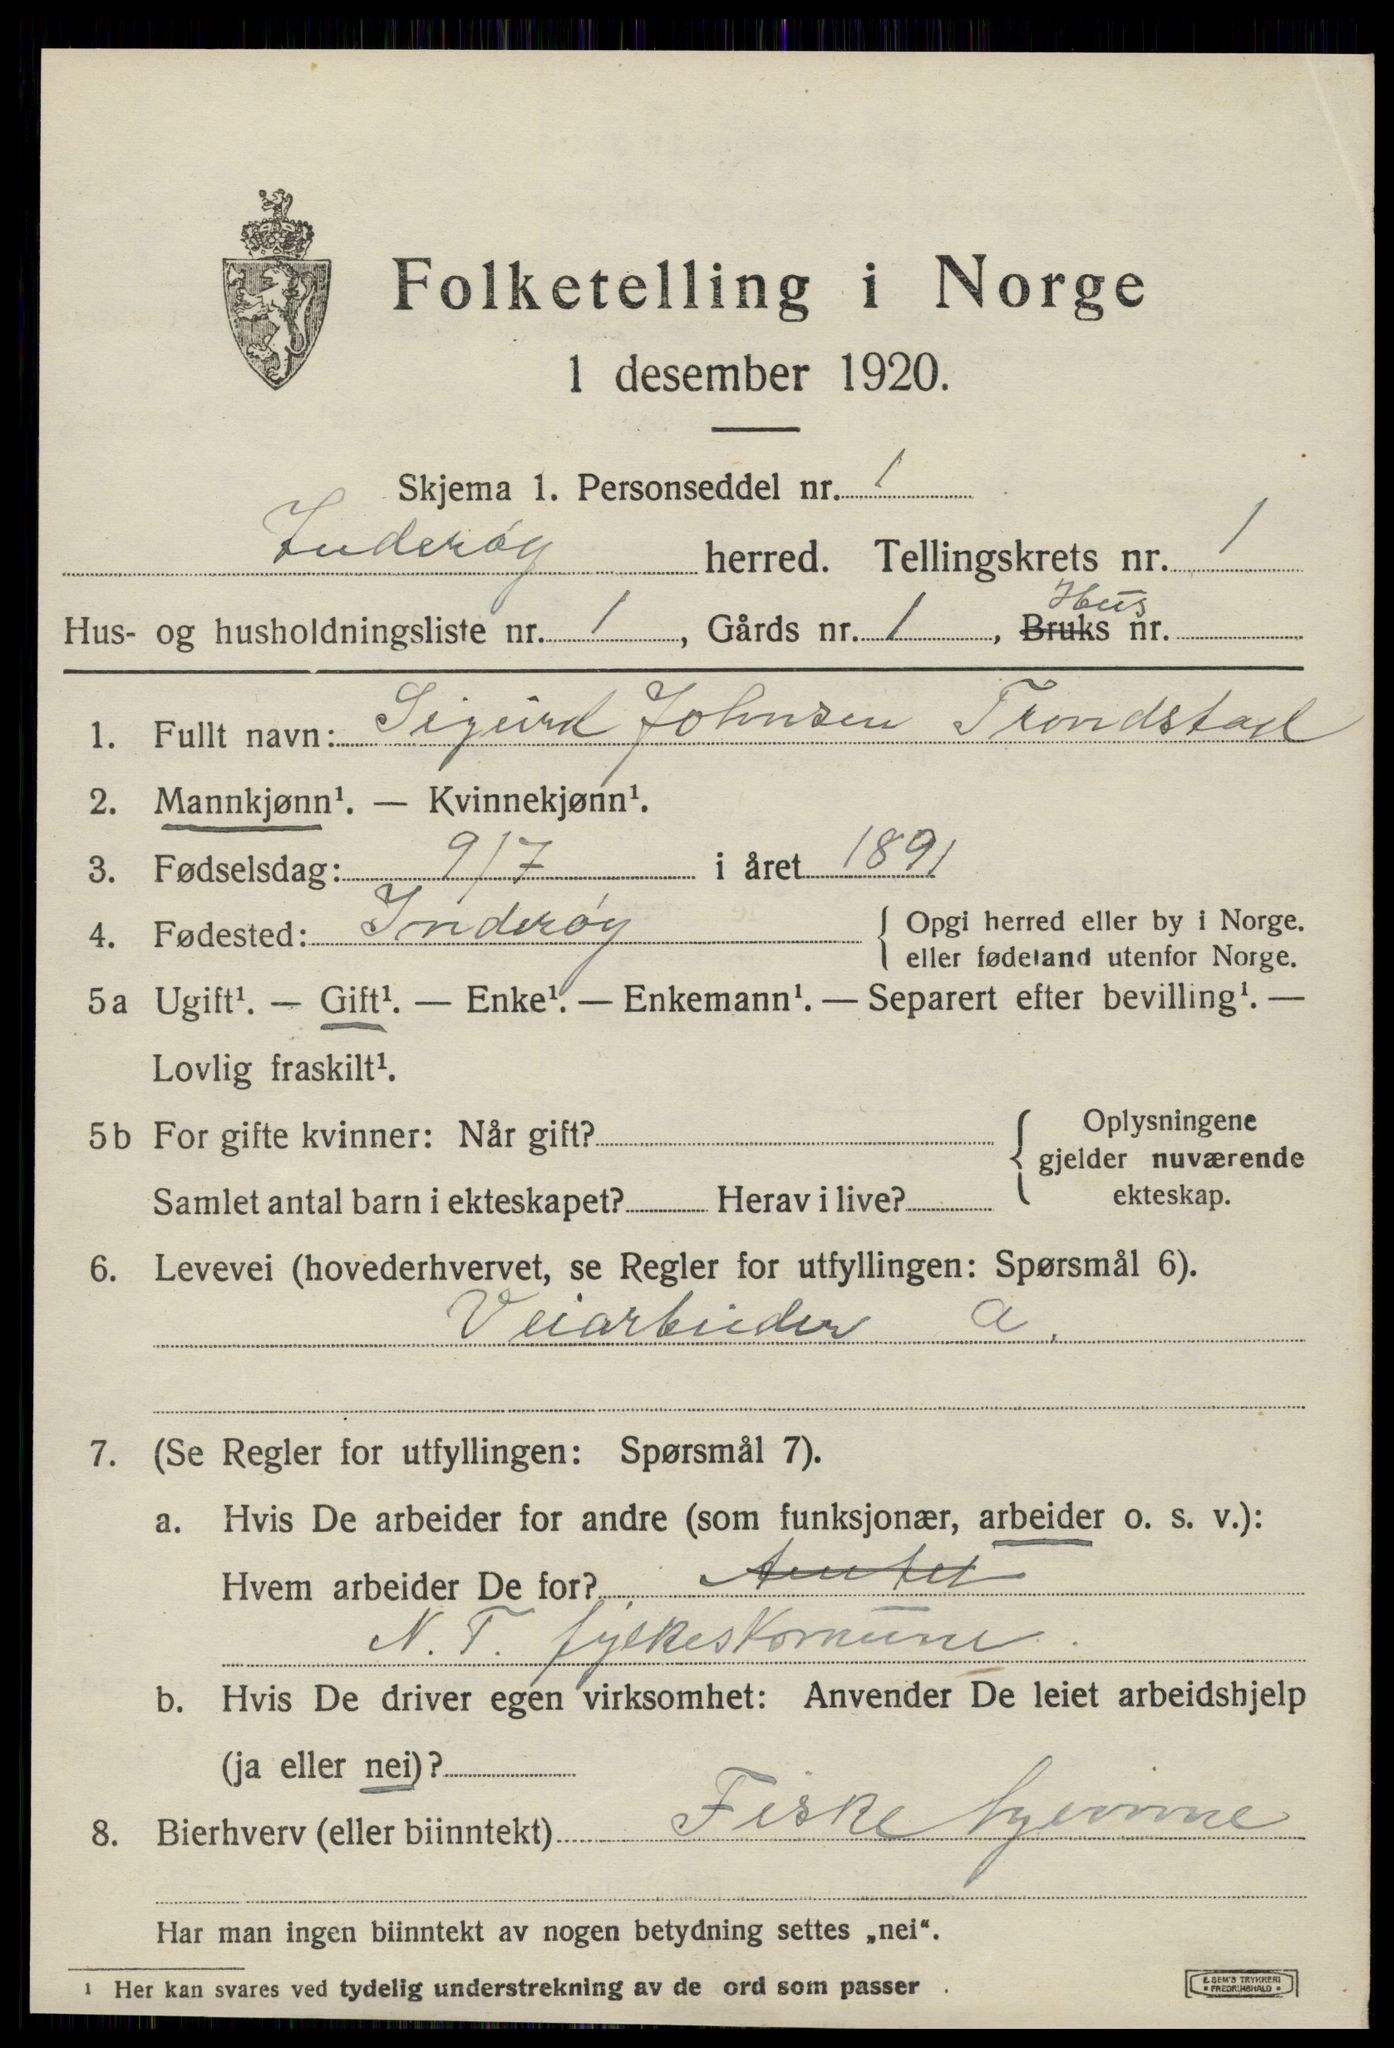 Folketelling i Norge
1 desember 1920.
Skjema 1. Personseddel nr. 1
Inderøy herred. Tellingskrets nr. 1
Hus
Hus- og husholdningsliste nr. 1, Gårds nr. 1, Bruks nr.
1. Fullt navn: Sigurd Johnsen Trondstad
2. Mannkjønn¹. — Kvinnekjønn¹.
3. Fødselsdag: 9/7 i året 1891
4. Fødested: Inderøy { Opgi herred eller by i Norge.
eller fødeland utenfor Norge.
5a Ugift¹. — Gift¹. — Enke¹. — Enkemann¹. — Separert efter bevilling¹. —
Lovlig fraskilt¹.
5b For gifte kvinner: Når gift? { Oplysningene
gjelder nuværende
Samlet antal barn i ekteskapet? Herav i live? ekteskap.
6. Levevei (hovederhvervet, se Regler for utfyllingen: Spørsmål 6).
Veiarbeider a.
7. (Se Regler for utfyllingen: Spørsmål 7).
a. Hvis De arbeider for andre (som funksjonær, arbeider o. s. v.):
Hvem arbeider De for? Amtet
N. T. fylkeskomune.
b. Hvis De driver egen virksomhet: Anvender De leiet arbeidshjelp
(ja eller nei)?
8. Bierhverv (eller biinntekt) Fiske hjemme
Har man ingen biinntekt av nogen betydning settes „nei“.
¹ Her kan svares ved tydelig understrekning av de ord som passer.
E. SEM'S TRYKKERI
FREDRIKSHALD